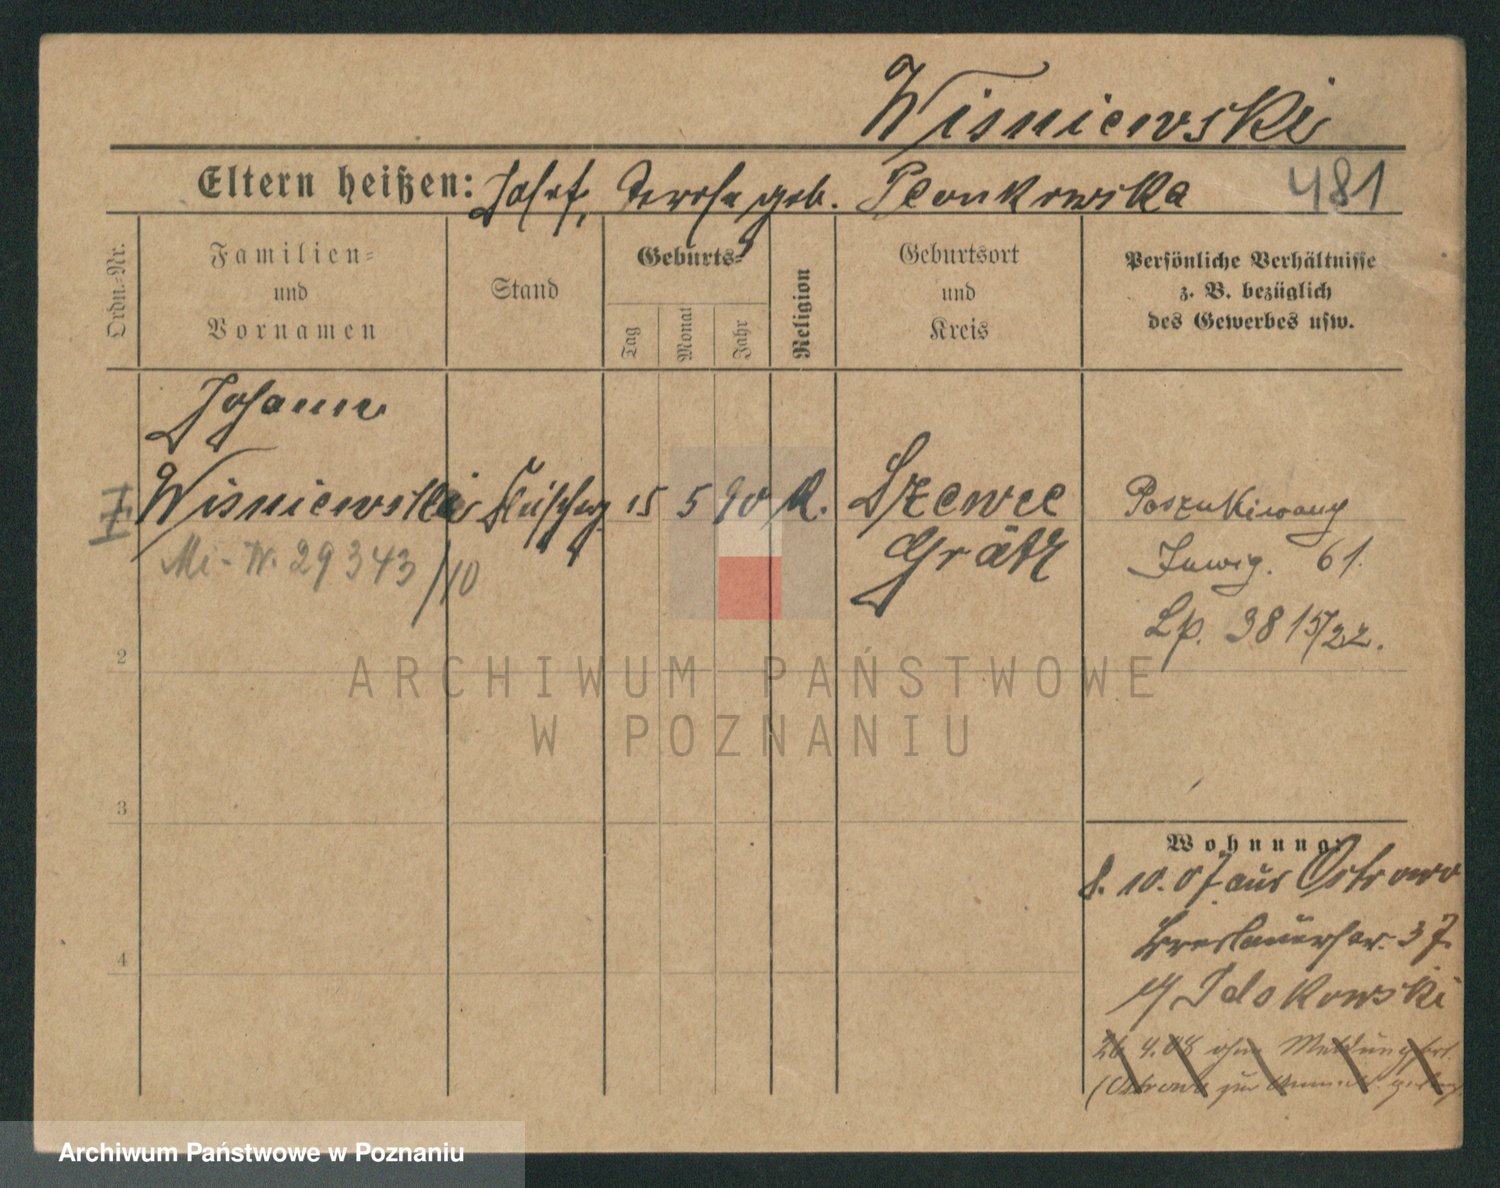 Wisniewski
Eltern heißen: Josef, Terese geb. Plonkowska 481
Ordn.-Nr.
Familien-
und
Vornamen
Stand
Geburts-
Tag
Monat
Jahr
Religion
Geburtsort
und
Kreis
Persönliche Verhältnisse
z. B. bezüglich
des Gewerbes usw.
Johann
I Wisniewski 15 5 90 K. Szewce Poszukiwany
Grätz 61.
Mi-W. 29343/10
Lp. 3815/22.
2
3
4
Wohnung:
8. 10. 07 aus Ostrowo
Breslauerstr. 37.
26 4.08 ohne Meldung
(Ostrowo zur
ARCHIWUM PAŃSTWOWE
W POZNANIU
Archiwum Państwowe w Poznaniu